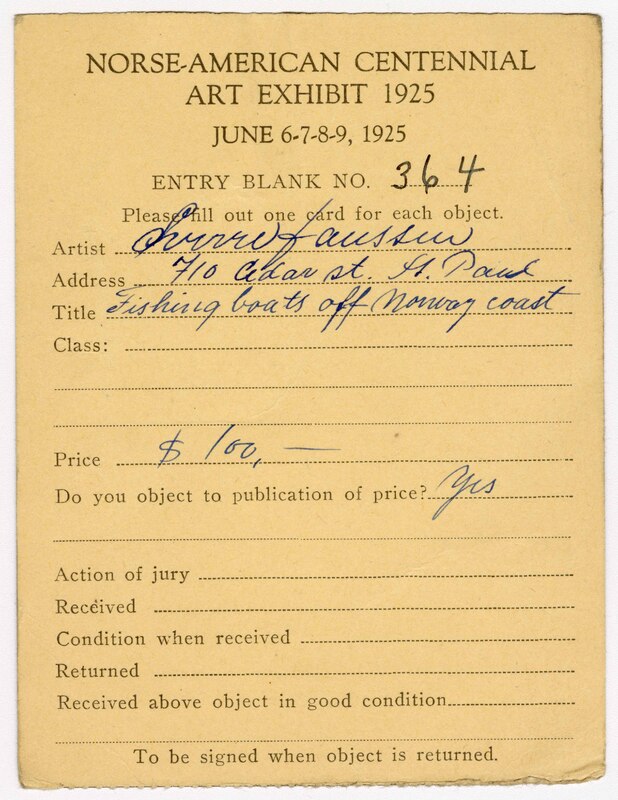 NORSE-AMERICAN CENTENNIAL
ART EXHIBIT 1925
JUNE 6-7-8-9, 1925
ENTRY BLANK NO. 364
Please fill out one card for each object.
Artist
Address 710 Cedar st. St. Paul
Title Fishing boats off Norway coast
Class:
Price $100,—
Do you object to publication of price? Yes
Action of jury
Received
Condition when received
Returned
Received above object in good condition
To be signed when object is returned.